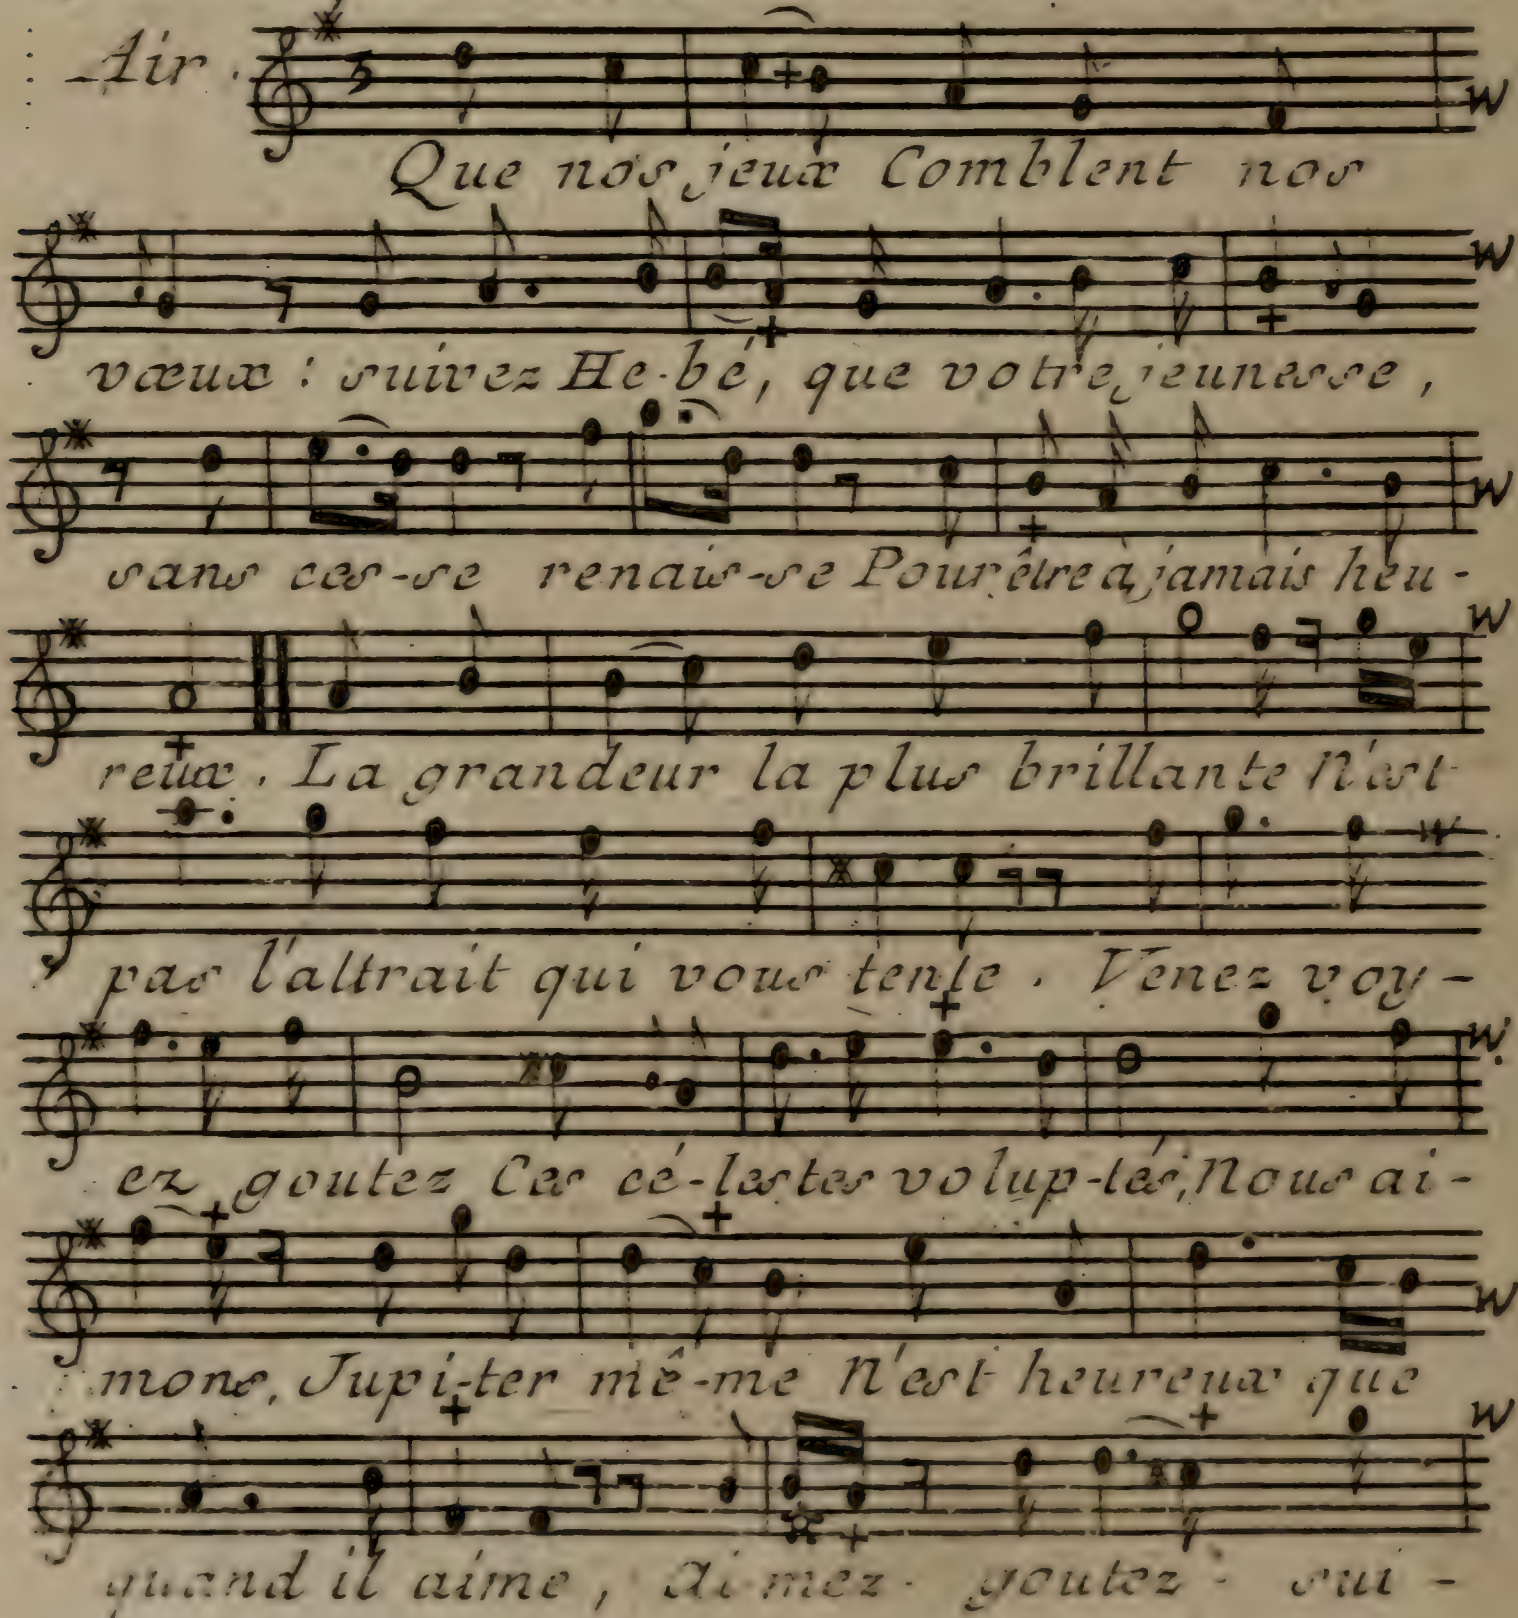 Air.
Que nos jeux Comblent nos
vœux : suivez He-bé, que votre jeunesse,
sans ces-se renais-se Pour être à jamais heu-
reux. La grandeur la plus brillante N'est
pas l'attrait qui vous tente. Venez voy-
ez goutez Ces cé-lestes volup-tés, Nous ai-
mons, Jupi-ter mê-me N'est heureux que
quand il aime, ai-mez- goutez- sui-